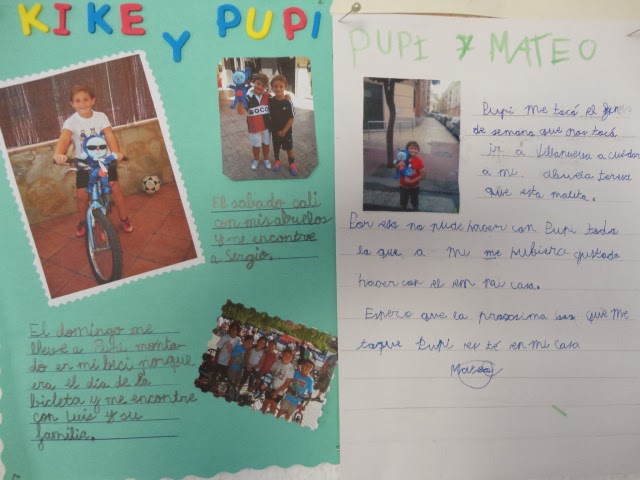 KIKE Y PUPI
El sabado cali
con mis abuelos
y me encontre
a Sergio.
El domingo me
lleve a Pupi monta
do en mi bici porque
era el día de la
bicleta y me encontre
con Luis y su
familia.
PUPI Y MATEO
Pupi me tocó el
de semana que nos tocá
ir á Villanueva a cuidar
a mi abuela teresa
que esta malita.
Por eso no pude hacer con Pupi toda
lo que a mi me hubiera gustado
hacer con el em mi casa.
Espero que la proxsima vez que me
toque Pupi es té en mi casa
Mateo